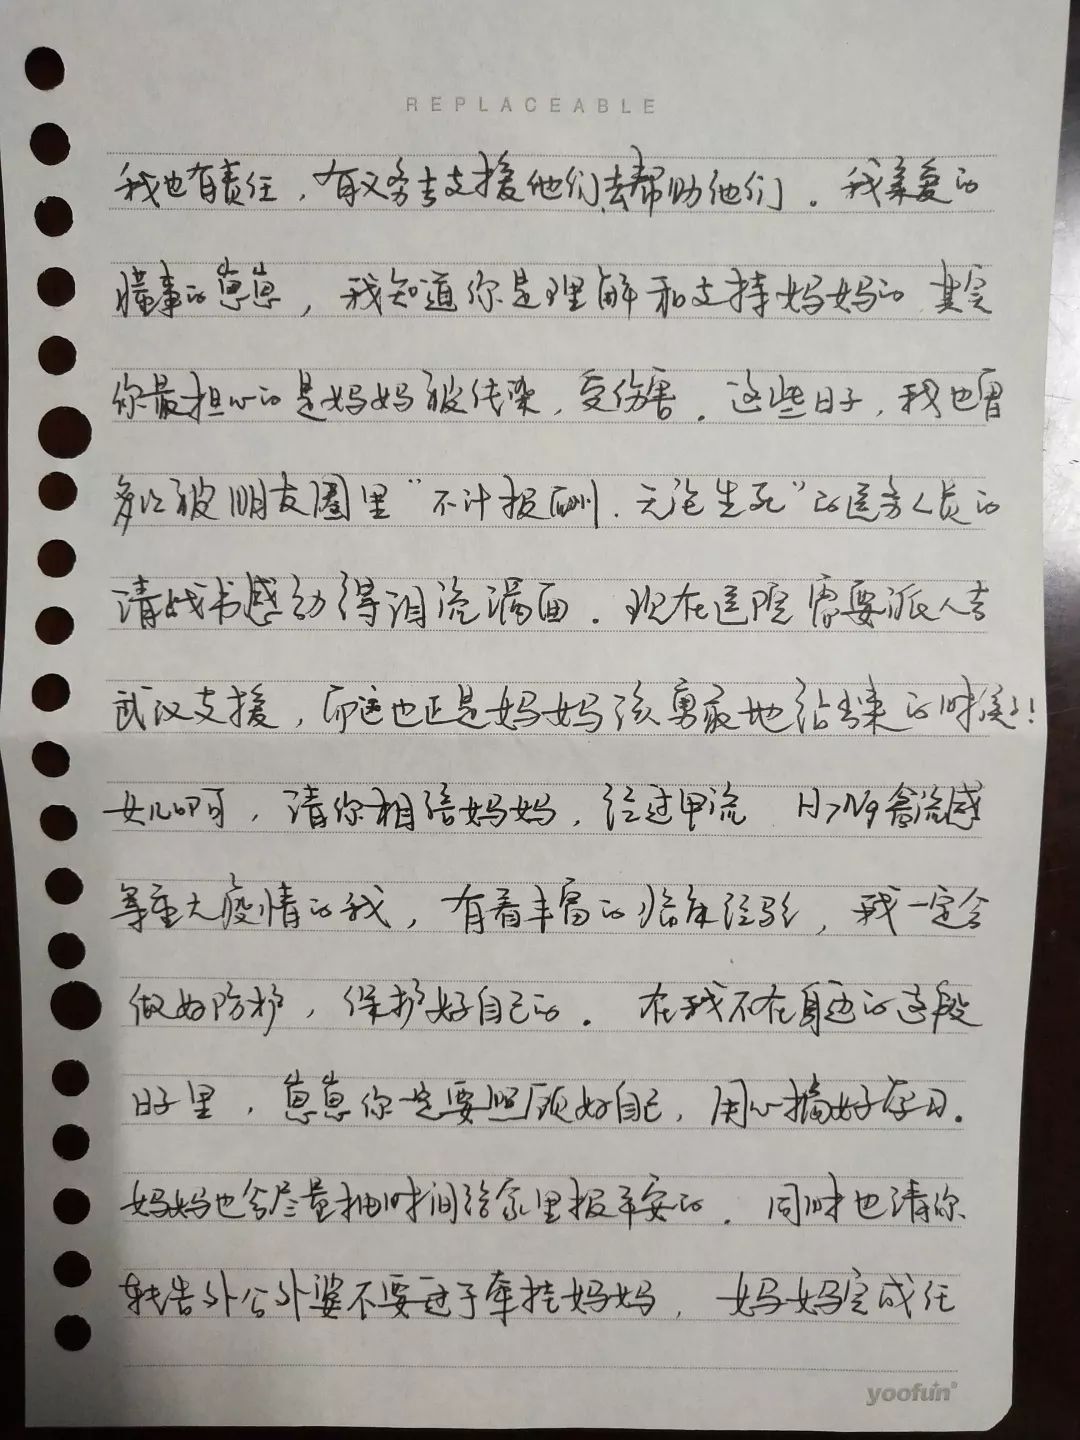 REPLACEABLE
我也有责任，有义务去支援他们，去帮助他们。我亲爱的
懂事的崽崽，我知道你是理解和支持妈妈的，其实
你最担心的是妈妈被传染，受伤害。这些日子，我也曾
多次被朋友圈里“不计报酬、无论生死”的医务人员的
请战书感动得泪流满面。现在医院需要派人去
武汉支援，而这也正是妈妈该勇敢地站出来的时候!!
女儿啊，请你相信妈妈，经过甲流、H7N9禽流感
等重大疫情的我，有着丰富的临床经验，我一定会
做好防护，保护好自己的。在我不在身边的这段
日子里，崽崽你一定要照顾好自己，用心搞好学习。
妈妈也会尽量抽时间给家里报平安的。同时也请你
转告外公外婆不要过于牵挂妈妈，妈妈完成任
yoofun